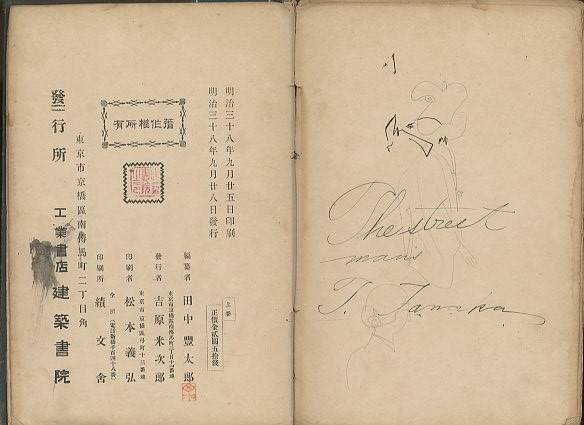 明治三十八年九月廿五日印刷
明治三十八年九月廿八日發行
著作權所有
上卷
正價金貳圓五拾錢
編纂者 田中豐太郎
發行者 吉原米次郎
東京市京橋區弓町十三番地
印刷者 松本義弘
印刷所 績文舍
東京市京橋區南傳馬町二丁目角
發行所 工業書店 建築書院
The street
T. Tanaka